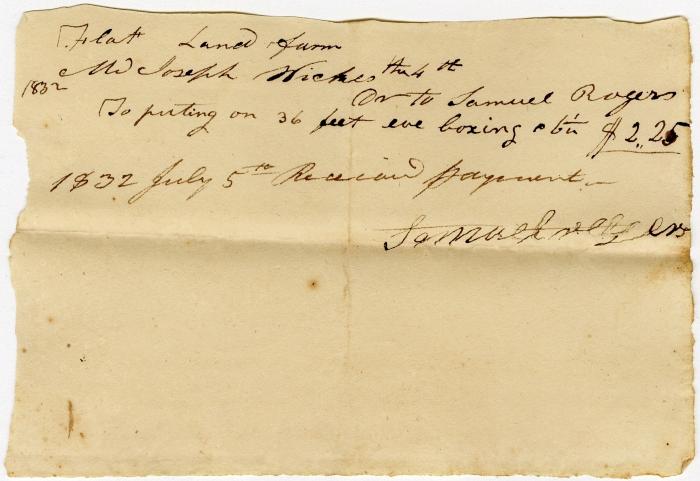 Flat Land farm
Mr Joseph Wickes the 4th
1832 Dr to Samuel Rogers
To puting on 36 feet eve boxing $ 2,,25
1832 July 5th Received payment
Samuel Rogers